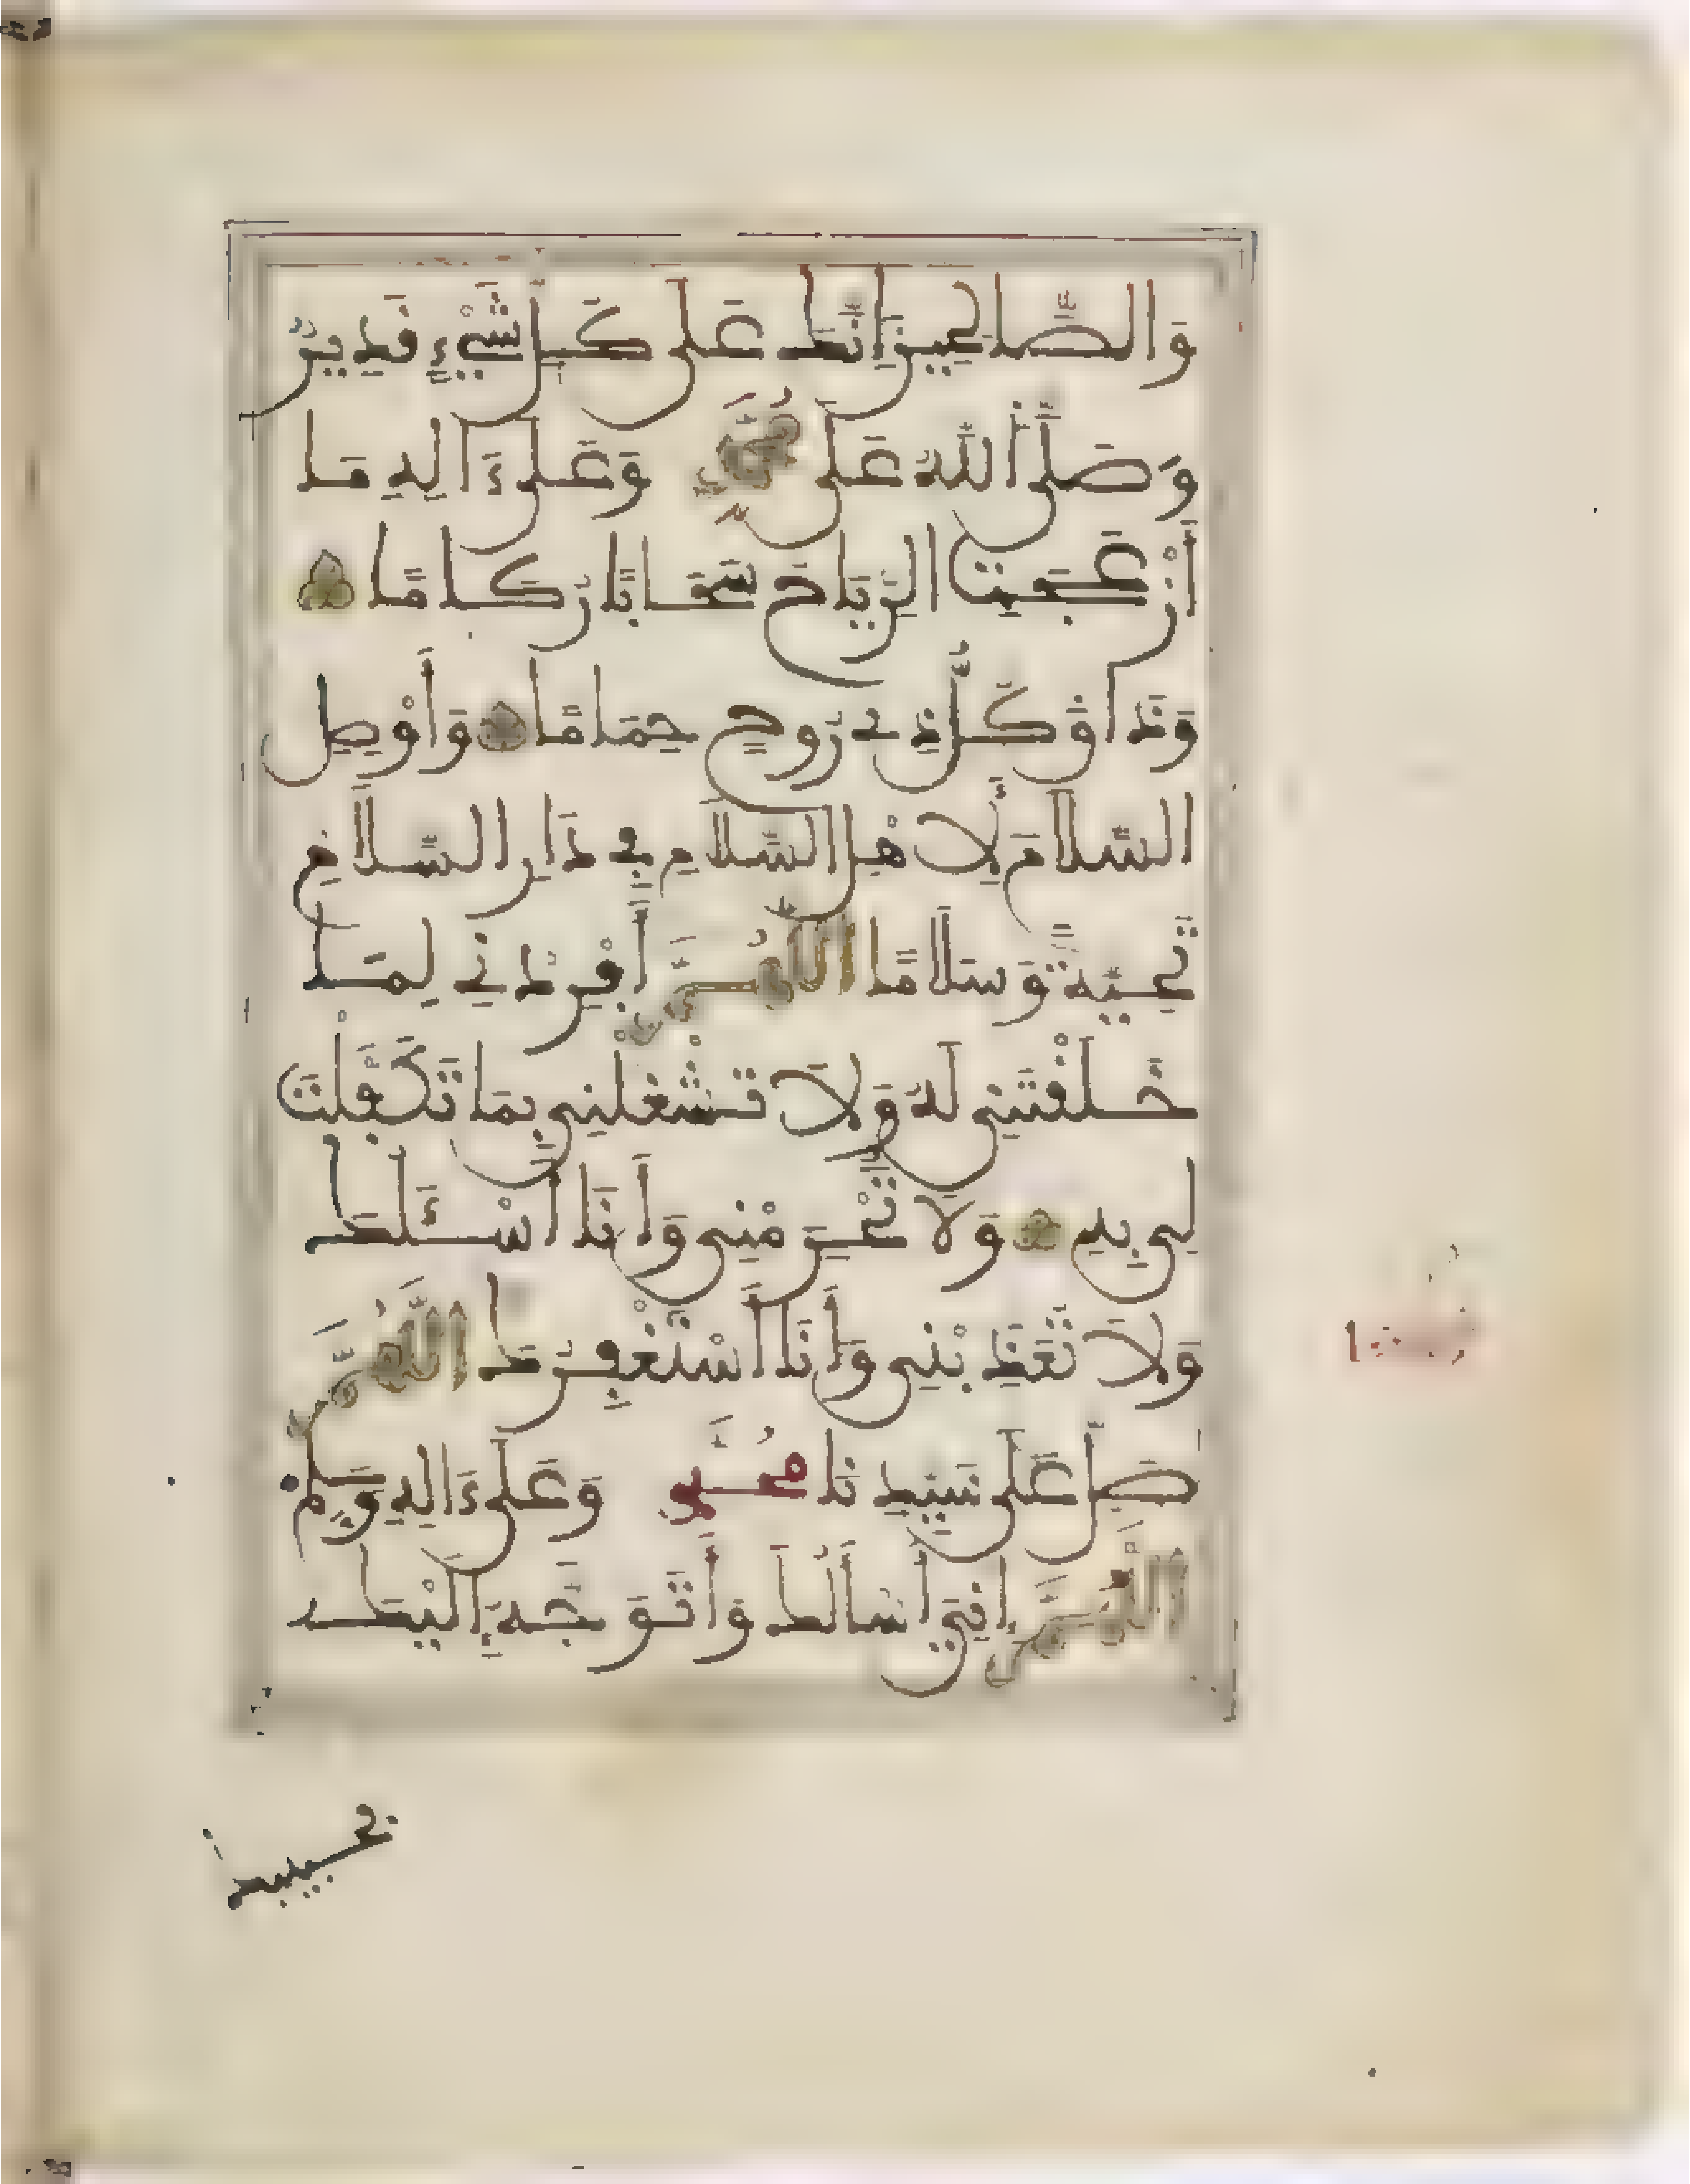 وَالصَّالِحِينَ إِنَّكَ عَلَى كُلِّ شَيْءٍ قَدِيرٌ
وَصَلَّى اللَّهُ عَلَى مُحَمَّدٍ وَعَلَى ءَالِهِ مَا
أَزْعَجَتِ الرِّيَاحُ سَحَابًا رُكَامًا
وَذَاقَ كُلُّ ذِي رُوحٍ حِمَامًا وَأَوْصِلِ
السَّلَامَ لِأَهْلِ السَّلَامِ فِي دَارِ السَّلَامِ
تَحِيَّةً وَسَلَامًا اللَّهُمَّ أَفْرِدْنِي لِمَا
خَلَقْتَنِي لَهُ وَلَا تَشْغَلْنِي بِمَا تَكَفَّلْتَ
لِي بِهِ وَلَا تَحْرِمْنِي وَأَنَا أَسْـَٔلُكَ
وَلَا تُعَذِّبْنِي وَأَنَا أَسْتَغْفِرُكَ اللَّهُمَّ
صَلِّ عَلَى سَيِّدِنَا مُحَمَّدٍ وَعَلَى ءَالِهِ وَسَلِّمْ
اللَّهُمَّ إِنِّي أَسْأَلُكَ وَأَتَوَجَّهُ إِلَيْكَ
بحبيبك